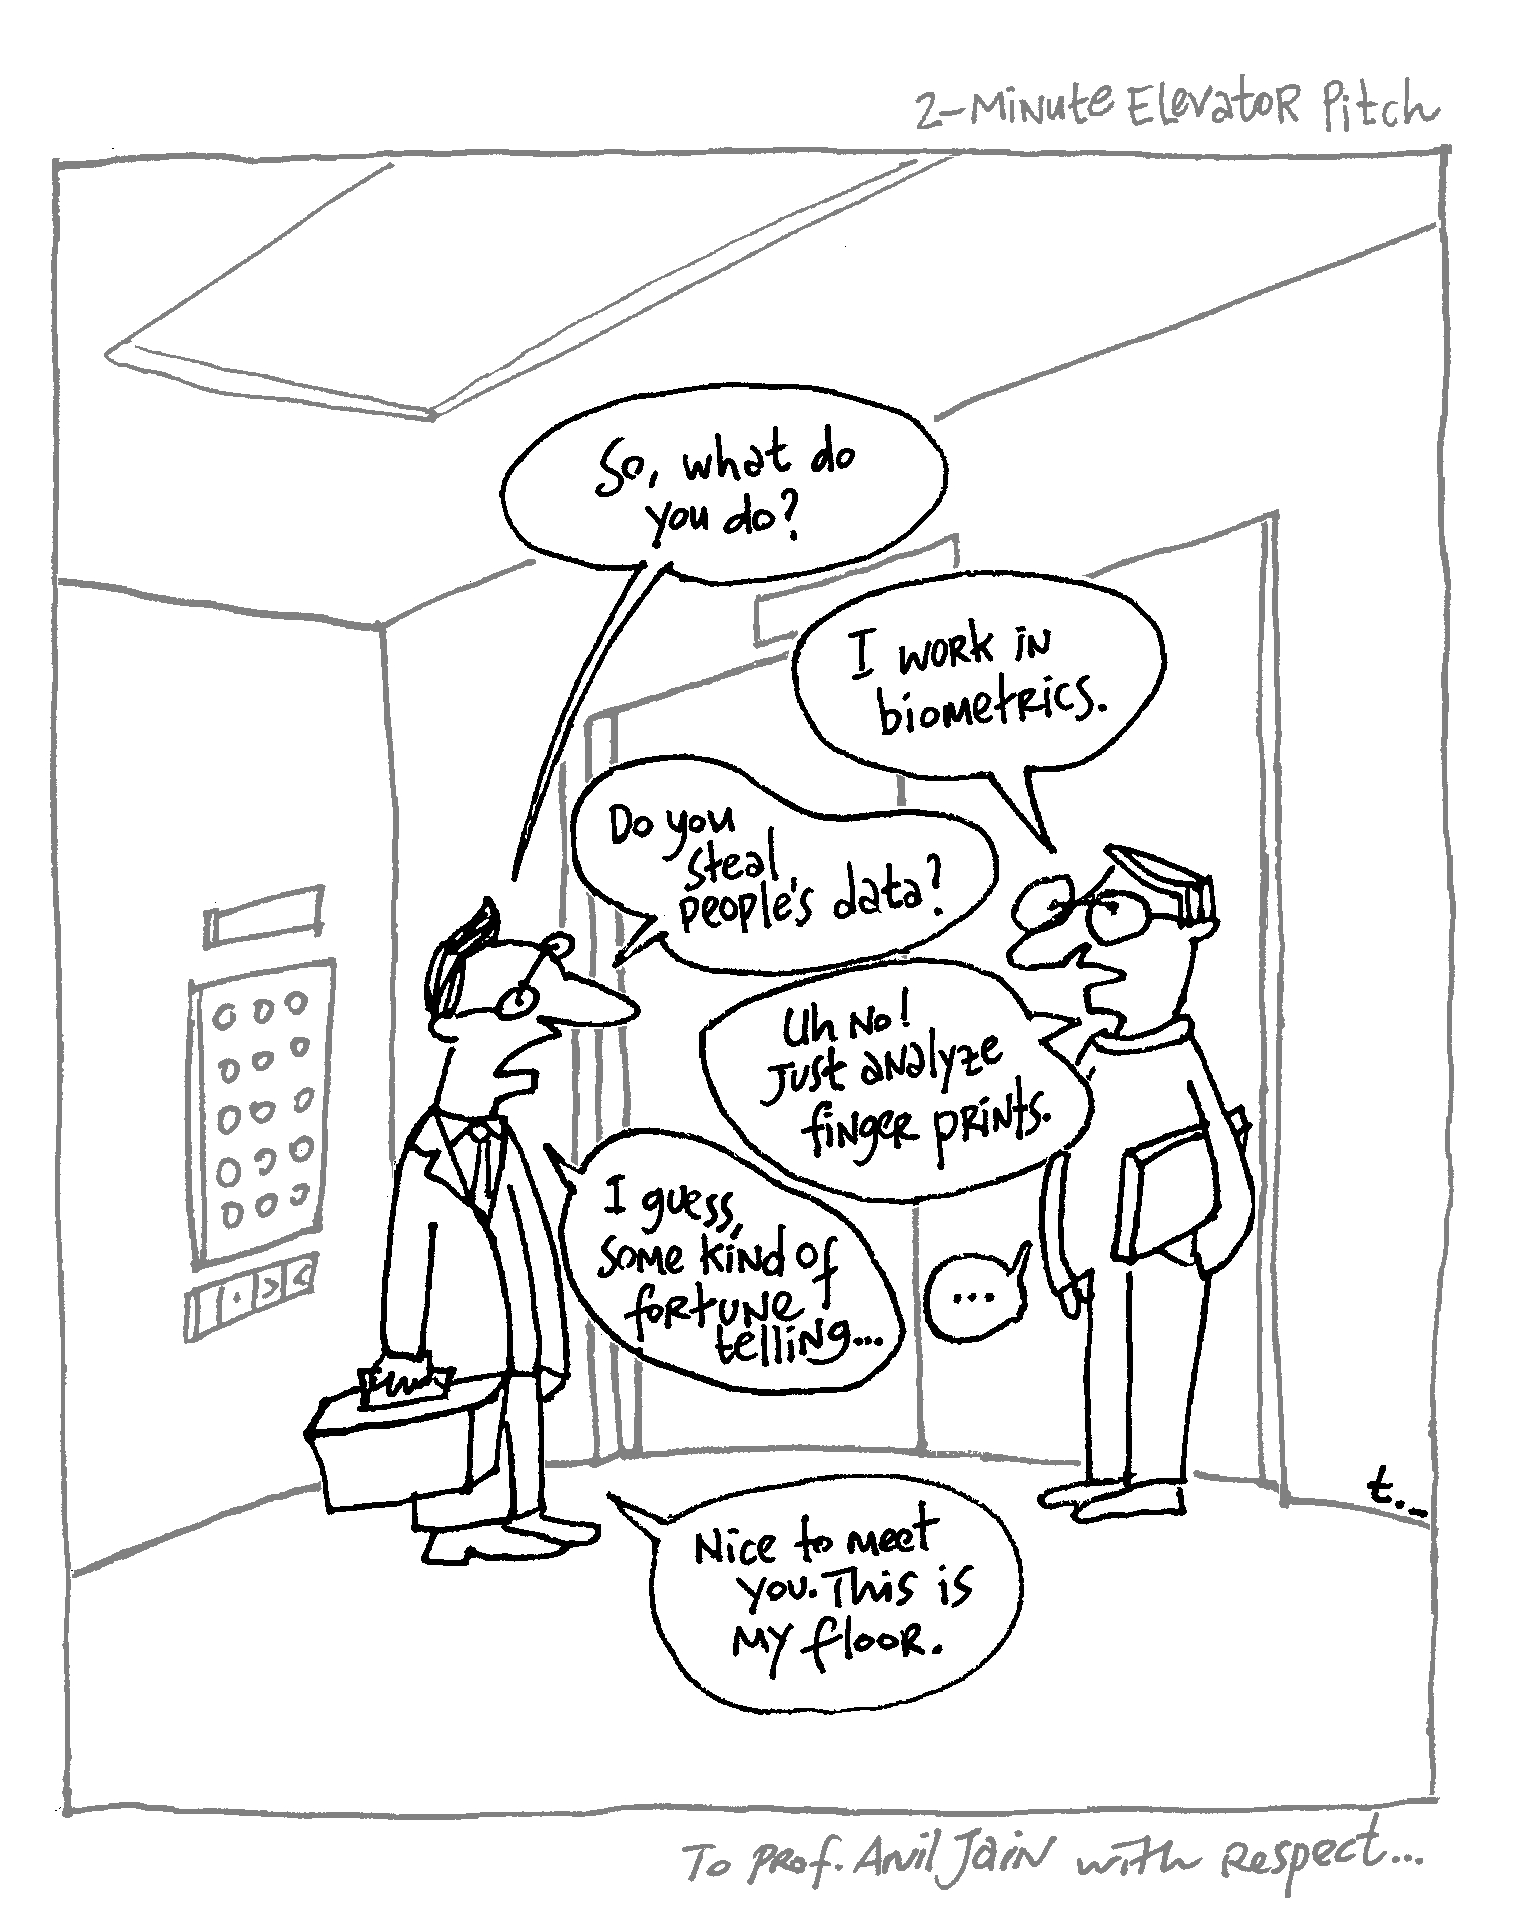 2-Minute Elevator Pitch
So, what do
you do?
I work in
biometrics.
Do you
steal
people's data?
Uh No!
Just analyze
finger prints.
I guess,
some kind of
fortune
telling...
...
Nice to meet
you. This is
my floor.
t...
To Prof. Anil Jain with Respect...